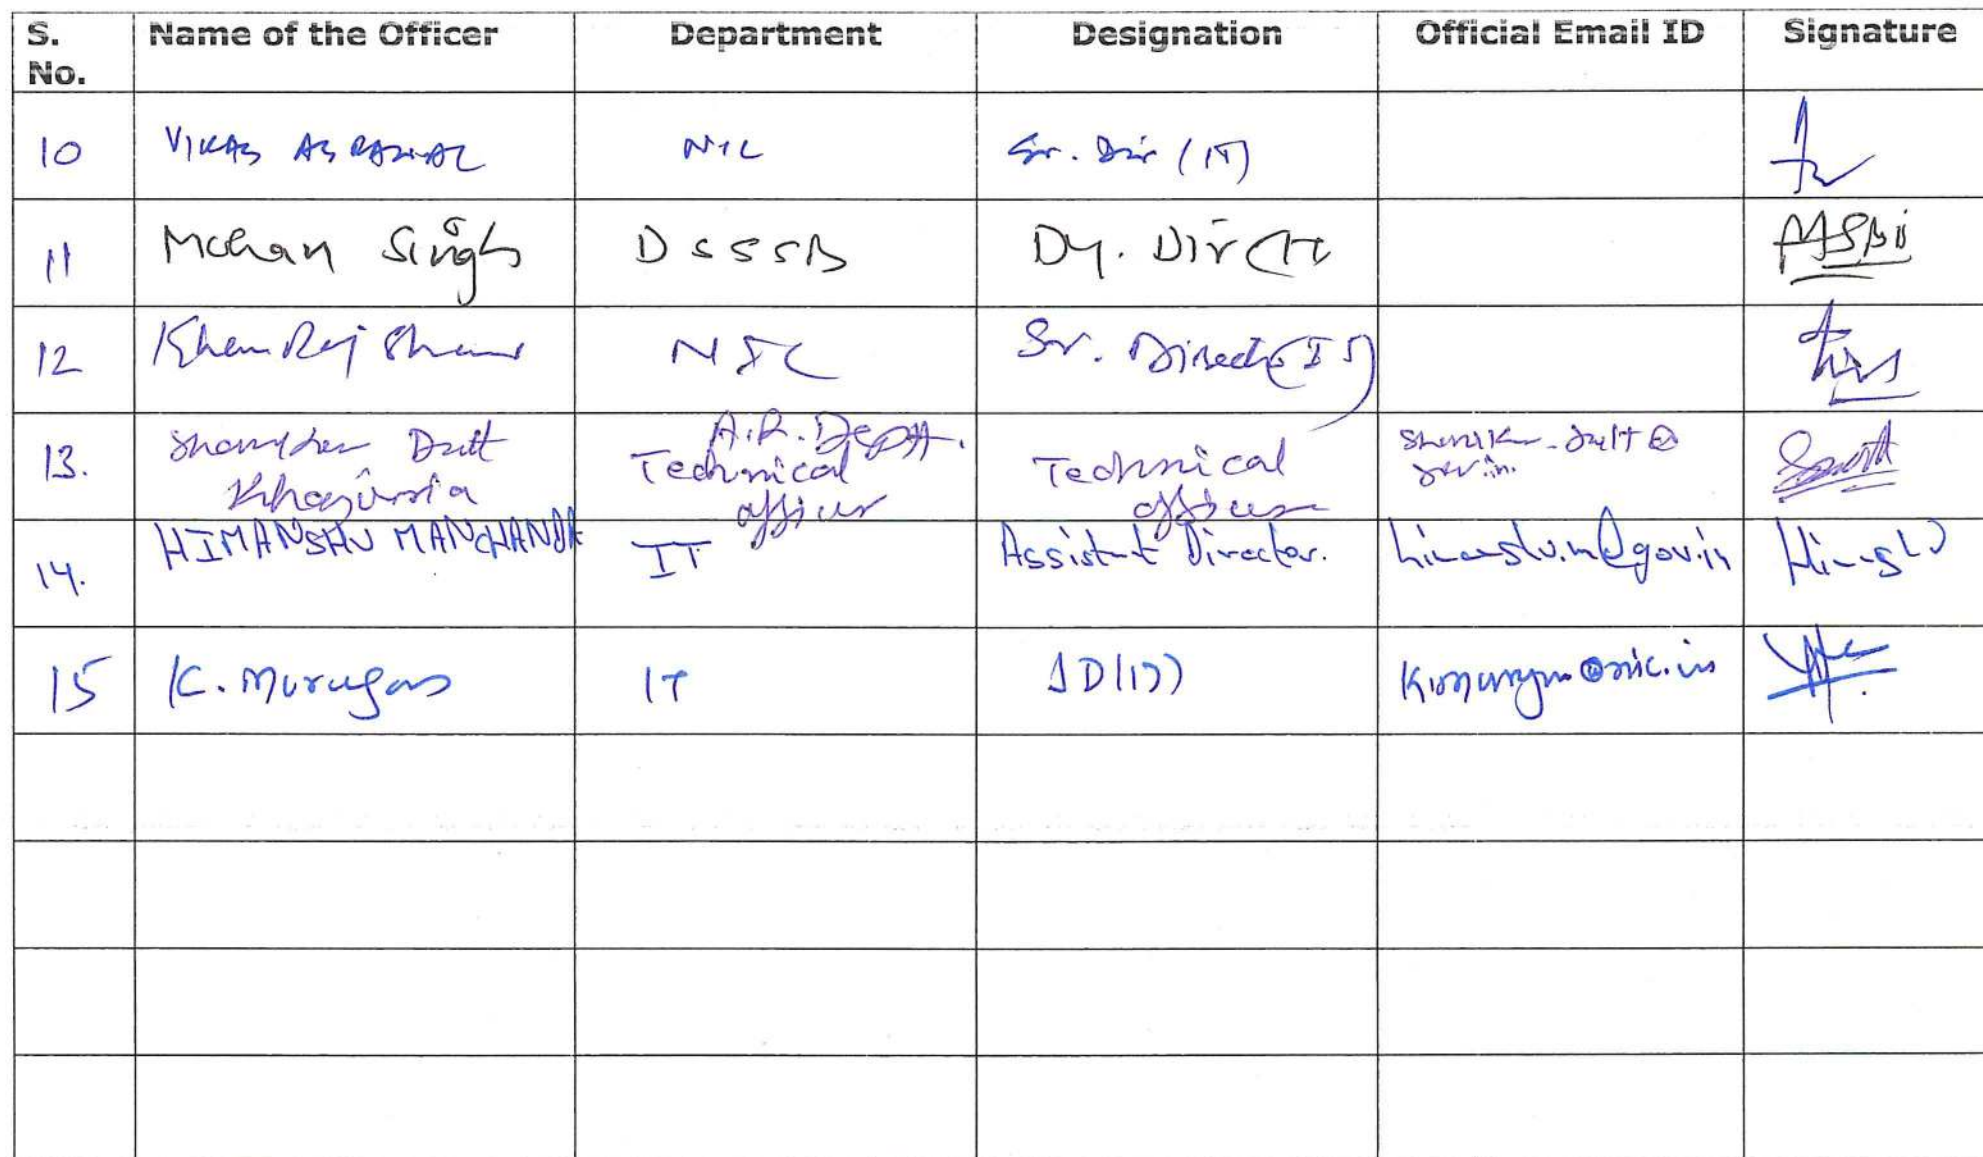 S. No. Name of the Officer Department Designation Official Email ID Signature
10 VIKAS AGRAWAL NIC Sr. Dir (IT)
11 Mohan Singh DSSSB Dy. Dir (IT
12 Khem Raj NIC Sr. Director (IT)
13. Dutt Khajuria A.R. Deptt. Technical officer Technical officer
14. HIMANSHU MANCHANDA IT Assistant Director. himanshu.m@gov.in
15 K. Murugan IT JD(IT)